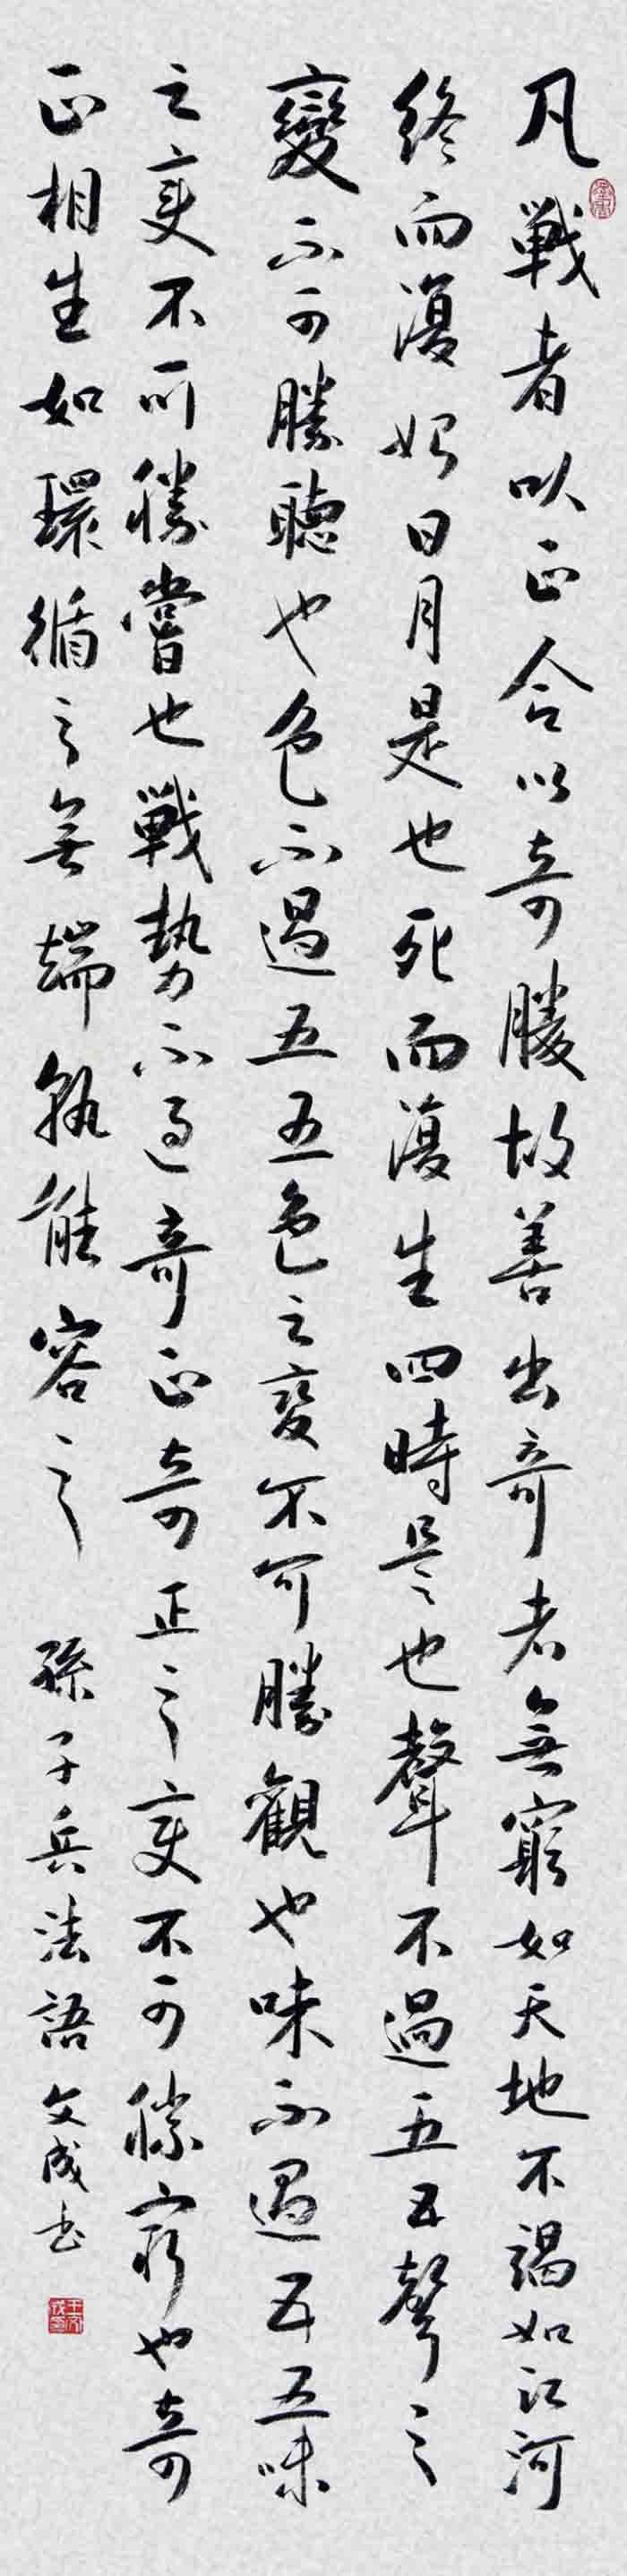 凡戰者以正合以奇勝故善出奇者無窮如天地不竭如江河
終而復始日月是也死而復生四時是也聲不過五五聲之
變不可勝聽也色不過五五色之變不可勝觀也味不過五五味
之變不可勝嘗也戰勢不過奇正奇正之變不可勝窮也奇
正相生如環循之無端孰能容之 孫子兵法語 文成書